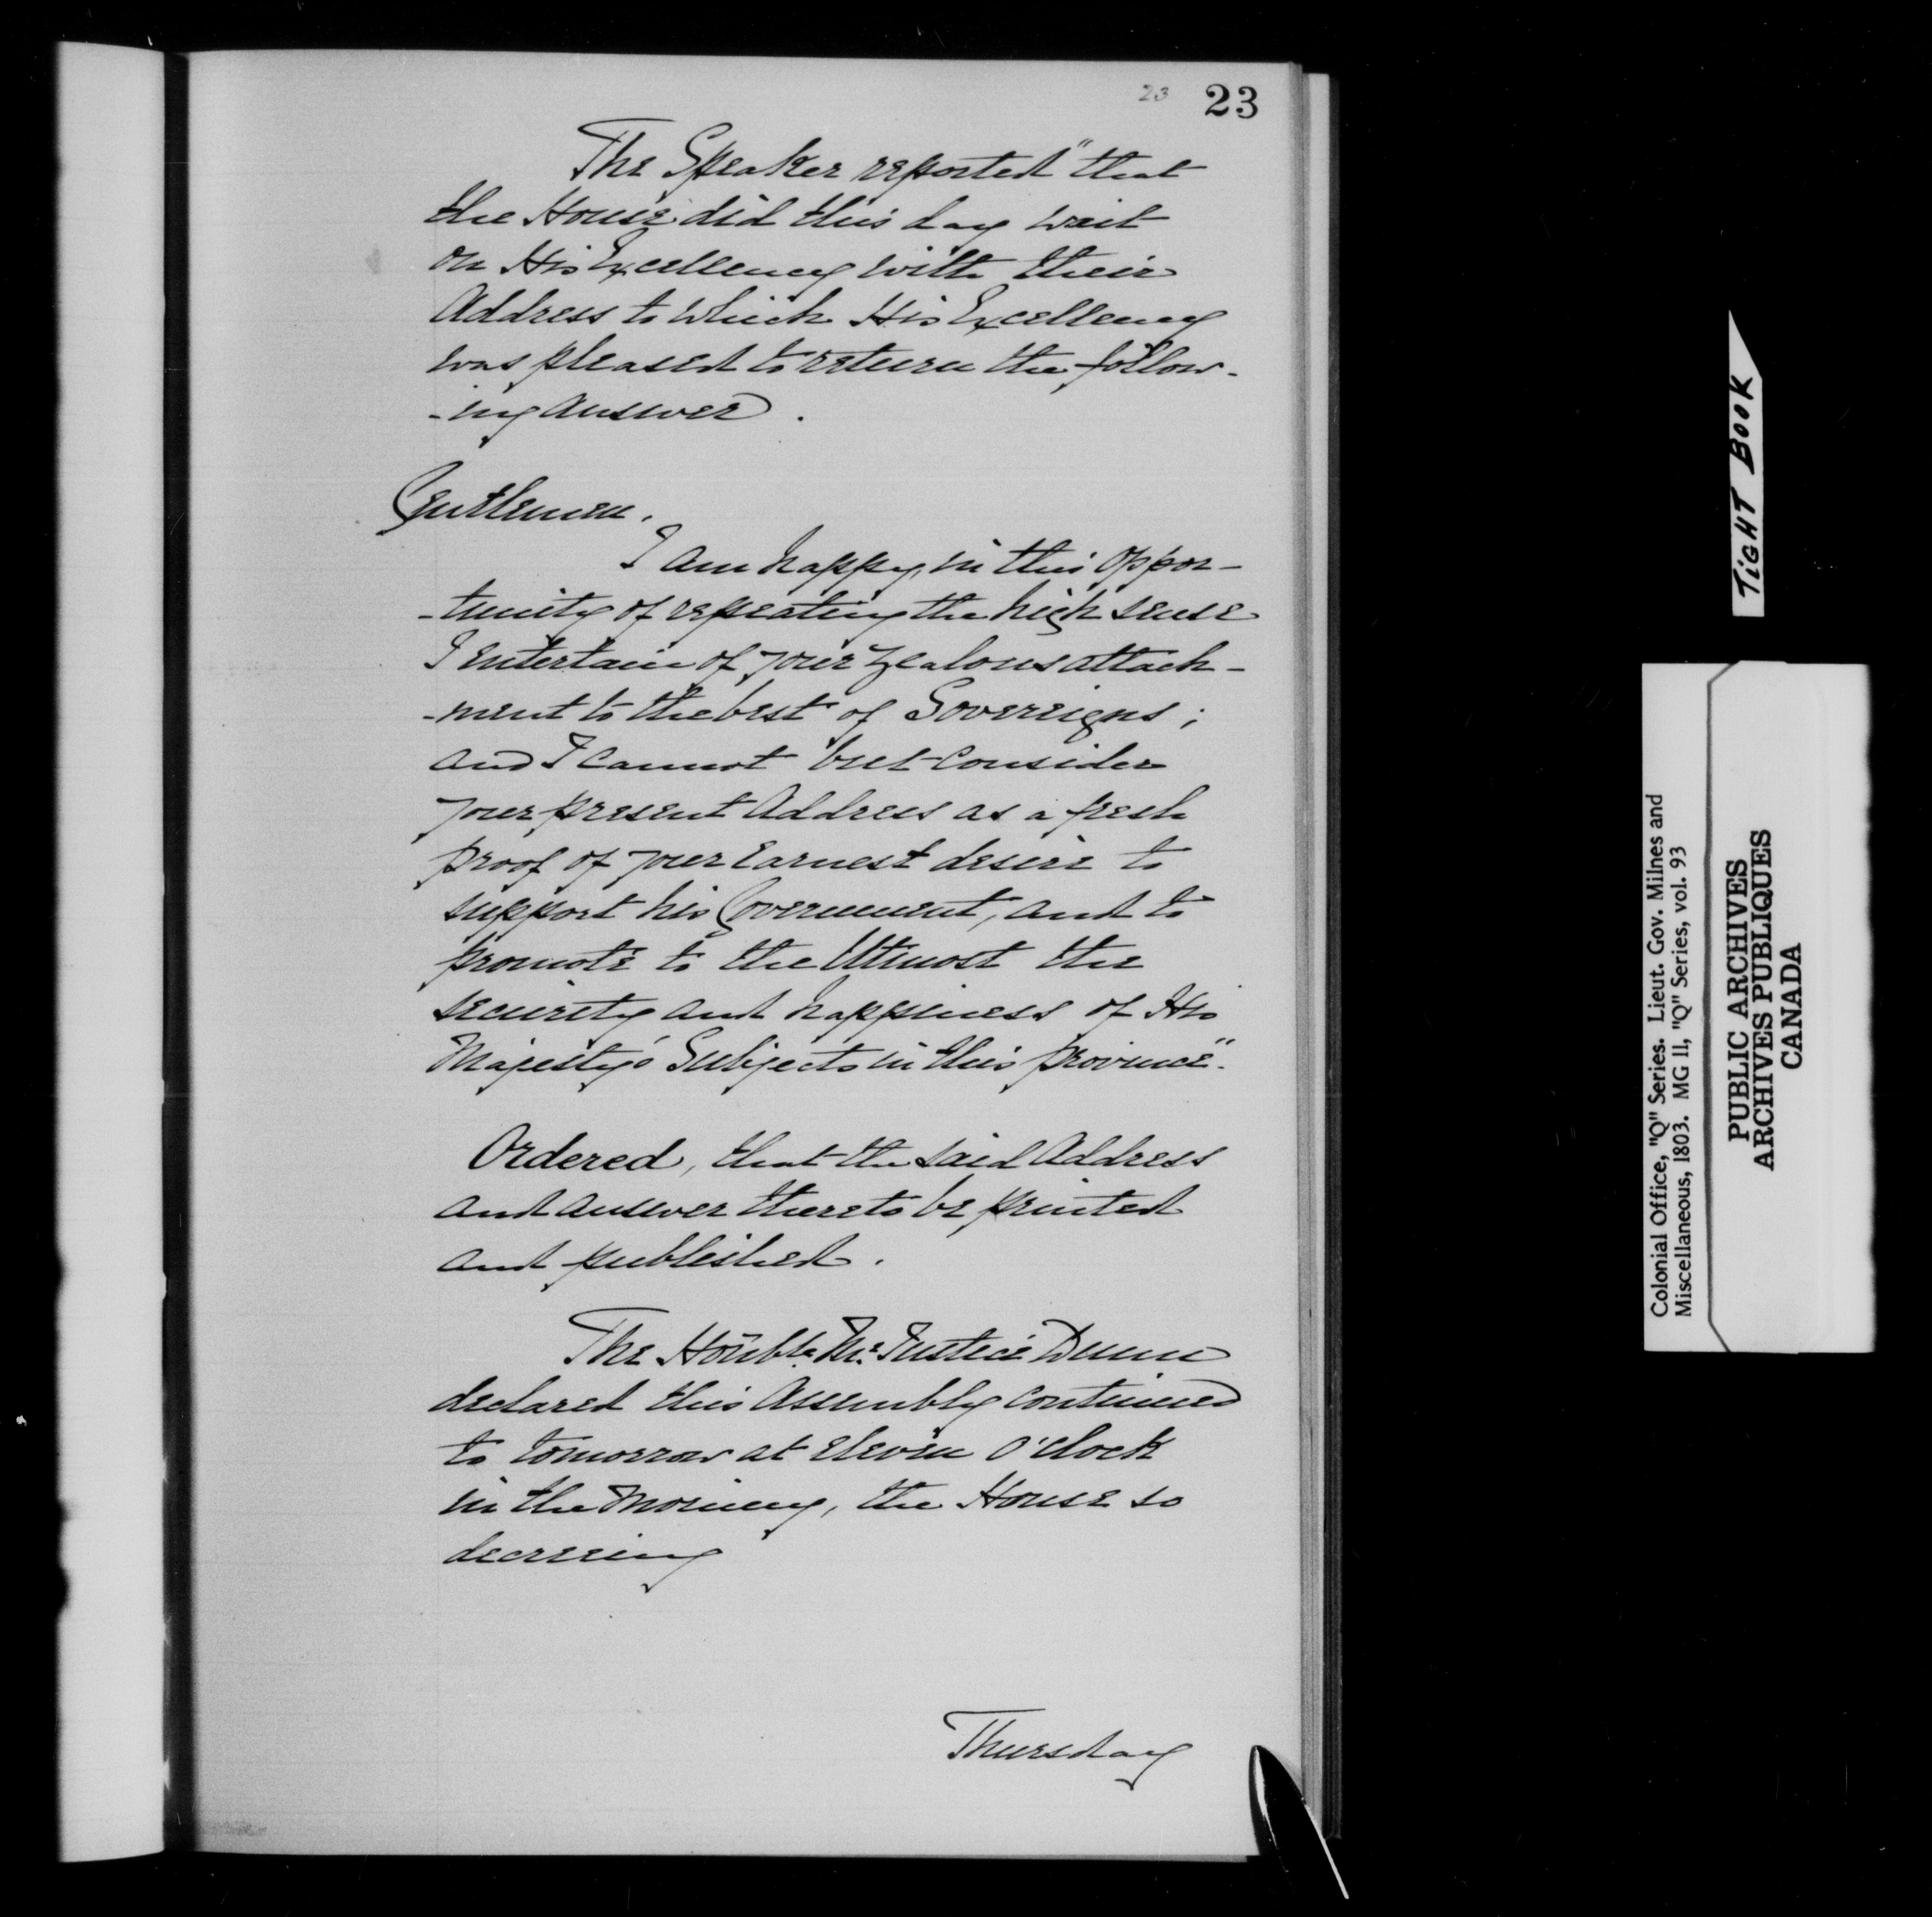 23 23
The Speaker reported "that
the House did this day wait
on His Excellency with their
Address to which His Excellency
was pleased to return the follow-
-ing answer.
Gentlemen.
I am happy, in this oppor-
-tunity of repeating the high sense
I entertain of your zealous attach-
-ment to the best of Sovereigns;
and I cannot but consider
your present Address as a fresh
proof of your earnest desire to
support his Government, and to
promote to the Utmost the
security and happiness of His
Majesty's Subjects in this province".
Ordered, that the said Address
and answer thereto be printed
and published.
The Honble. Mr. Justice Dunn
declared this Assembly continued
to tomorrow at eleven O'Clock
in the Morning, the House so
decreeing
Thursday
TIGHT BOOK
Colonial Office, "Q" Series. Lieut. Gov. Milnes and
Miscellaneous, 1803. MG 11, "Q" Series, vol. 93
PUBLIC ARCHIVES
ARCHIVES PUBLIQUES
CANADA